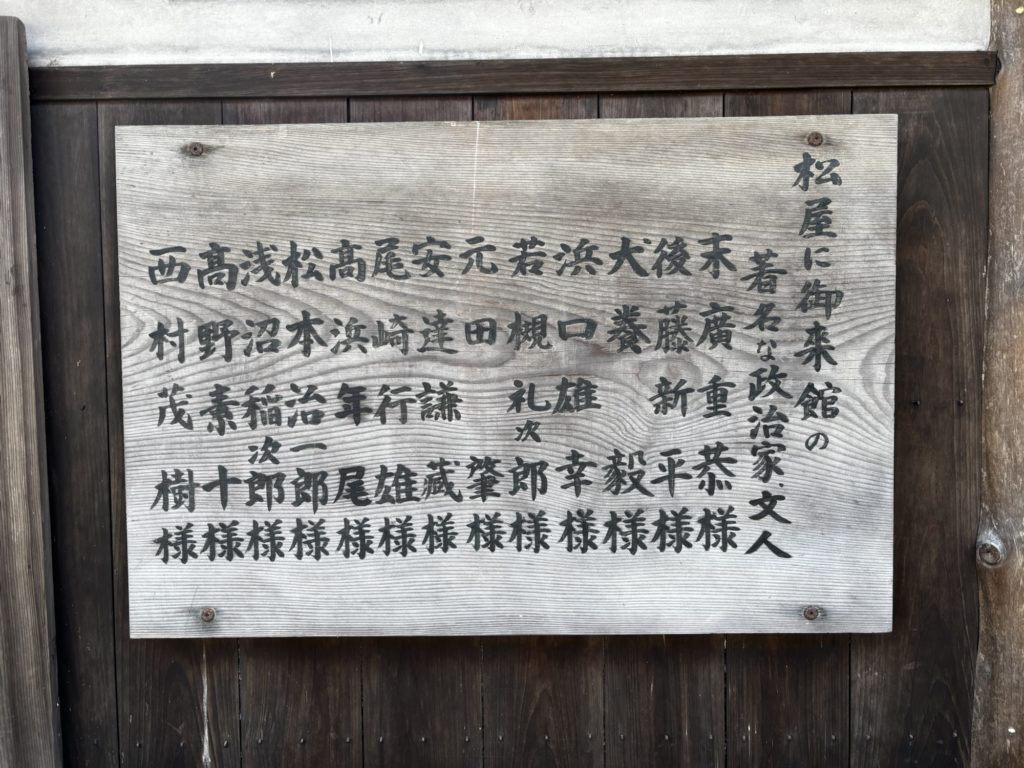 松屋に御来館の
著名な政治家、文人
末廣重恭様
後藤新平様
犬養毅様
浜口雄幸様
若槻礼次郎様
元田肇様
安達謙蔵様
尾崎行雄様
高浜年尾様
松本治一郎様
浅沼稲次郎様
高野素十様
西村茂樹様